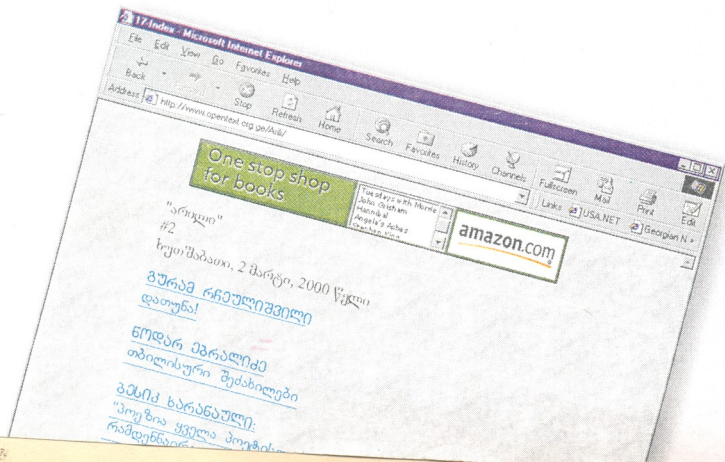 17-Index - Microsoft Internet Explorer
File Edit View Go Favorites Help
Back Stop Refresh Home Search Favorites History Channels Fullscreen Mail Print Edit
Address http://www.opentext.org.ge/Arili/ Links USA.NET Georgian N
One stop shop
for books
Tuesdays with Morrie
John Grisham
Hannibal
Angela's Ashes
amazon.com
"არილი"
#2
ხუთშაბათი, 2 მარტი, 2000 წელი
გურამ რჩეულიშვილი
დათუნა!
ნოდარ ებრალიძე
თბილისური შეძახილები
ბესიკ ხარანაული:
"პოეზია ყველა პოეტისთ
რამდენნაირ